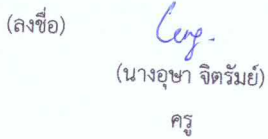 (ลงชื่อ)
(นางอุษา จิตรัมย์)
ครู